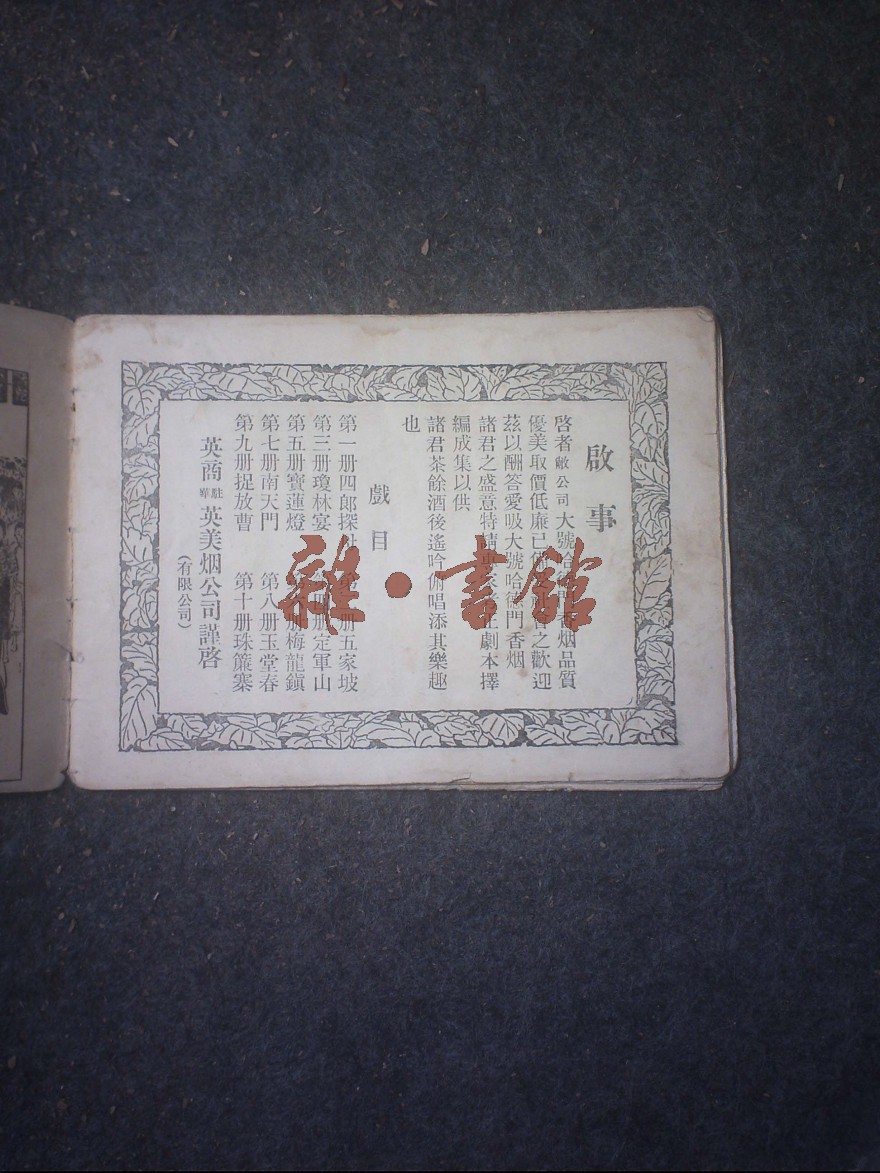 啟事
啓者敝公司大號哈德門香烟品質
優美取價低廉已備之歡迎
茲以酬答愛吸大號哈德門香烟
諸君之盛意特請劇本擇
編成集以供
諸君茶餘酒後遙吟俯唱添其樂趣
也
戲目
第一册四郎探 册五家坡
第三册瓊林宴 册定軍山
第五册寳蓮燈 梅龍鎮
第七册南天門 第八册玉堂春
第九册捉放曹 第十册珠簾寨
英商駐華英美烟公司謹啓
(有限公司)
雜·書館